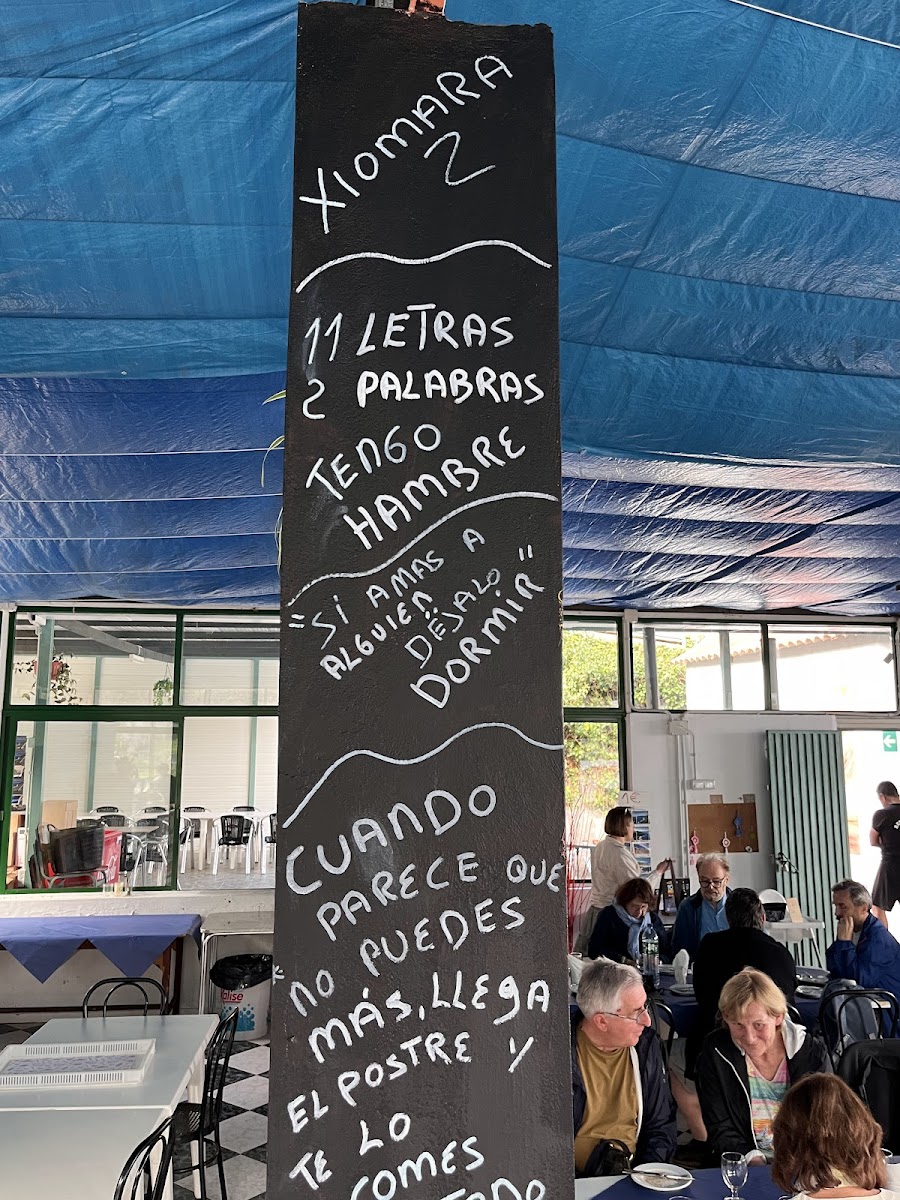 XIOMARA
2
11 LETRAS
2 PALABRAS
TENGO
HAMBRE
"Si AMAS A
ALGUIEN
DÉJALO
DORMIR"
CUANDO
PARECE QUE
NO PUEDES
MÁS, LLEGA
EL POSTRE Y
TE LO
COMES
TODO
1€.